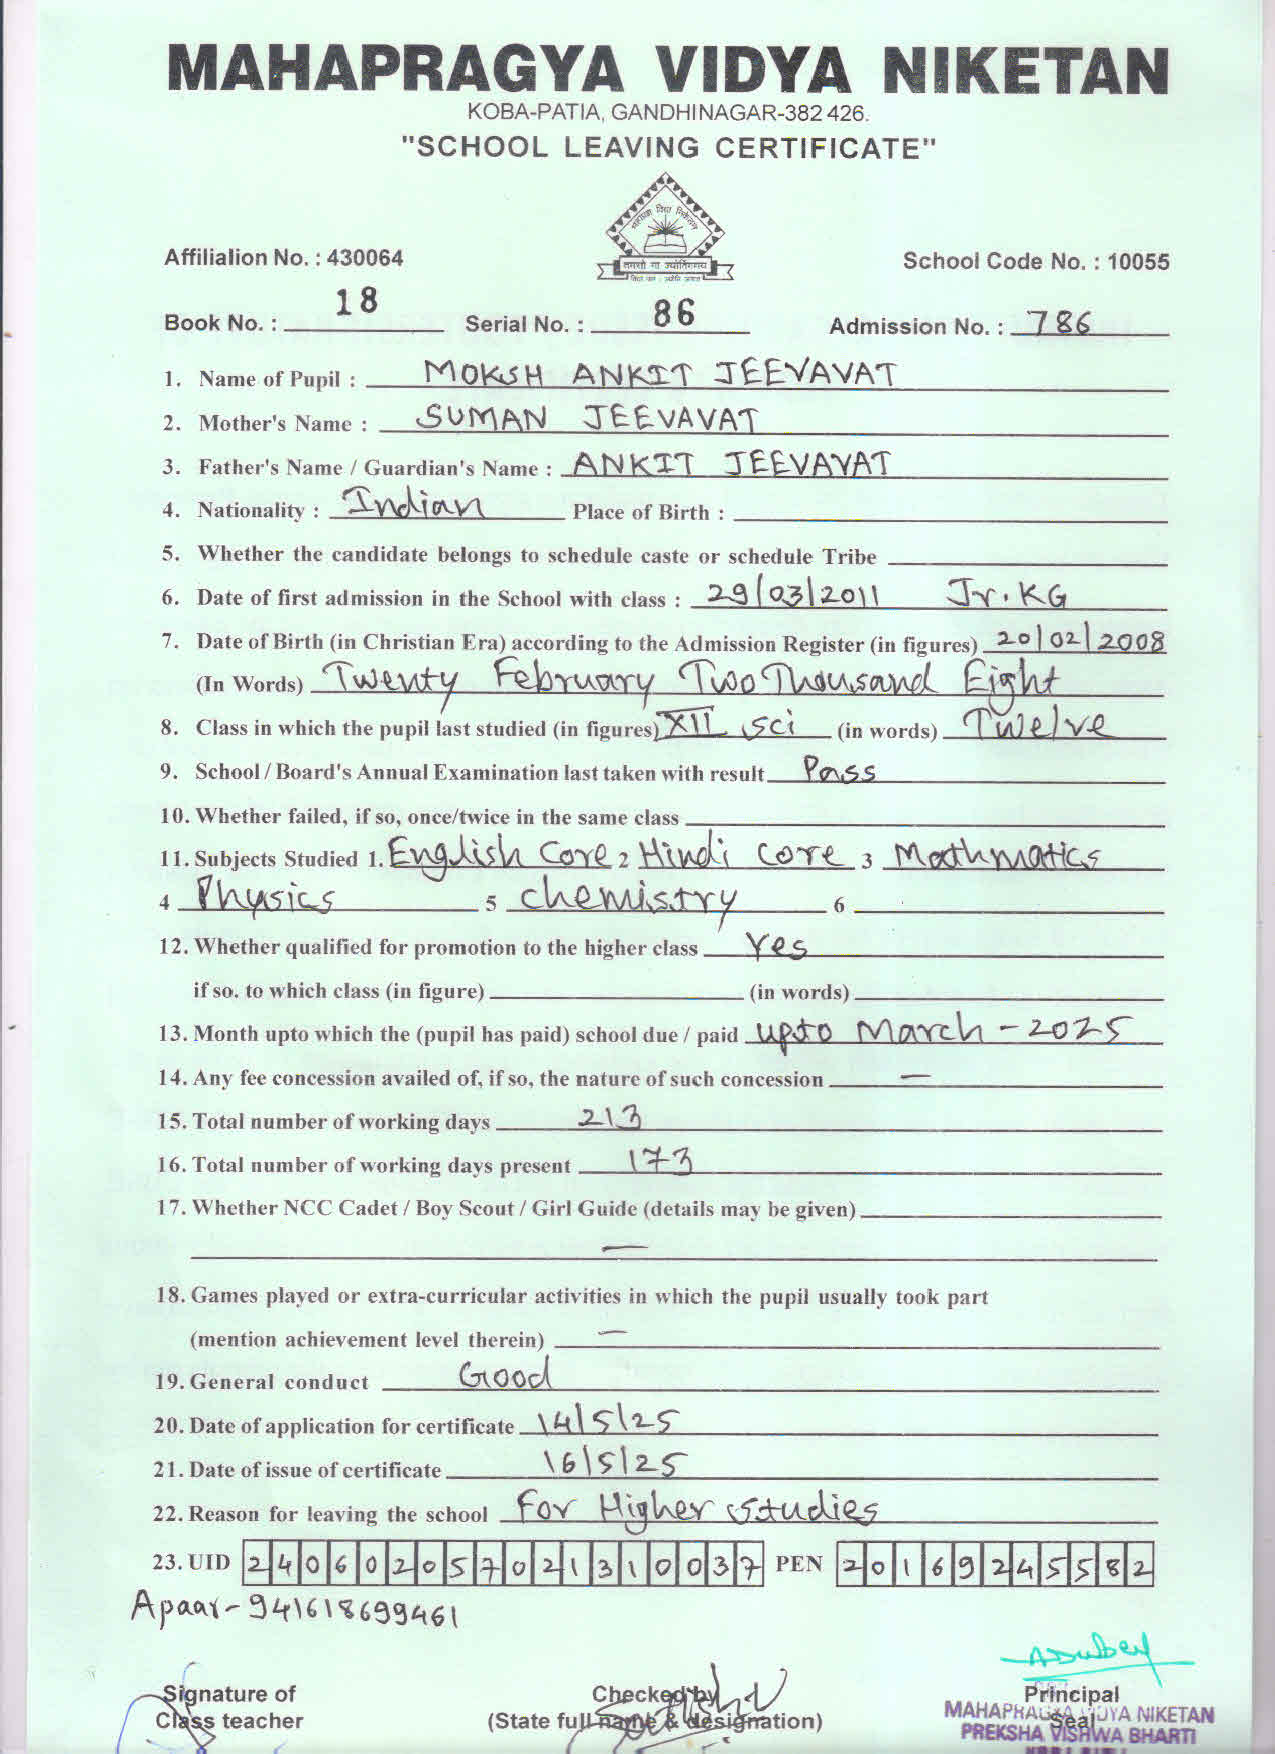 MAHAPRAGYA VIDYA NIKETAN
KOBA-PATIA, GANDHINAGAR-382 426.
"SCHOOL LEAVING CERTIFICATE"
महाप्रज्ञ विद्या निकेतन
तमसो मा ज्योतिर्गमय
Affilialion No. : 430064
School Code No. : 10055
Book No. : 18 Serial No. : 86 Admission No. : 786
1. Name of Pupil : MOKSH ANKIT JEEVAVAT
2. Mother's Name : SUMAN JEEVAVAT
3. Father's Name / Guardian's Name : ANKIT JEEVAVAT
4. Nationality : Indian Place of Birth :
5. Whether the candidate belongs to schedule caste or schedule Tribe
6. Date of first admission in the School with class : 29/03/2011 Jr. KG
7. Date of Birth (in Christian Era) according to the Admission Register (in figures) 20/02/2008
(In Words) Twenty February Two Thousand Eight
8. Class in which the pupil last studied (in figures) XII sci (in words) Twelve
9. School / Board's Annual Examination last taken with result Pass
10. Whether failed, if so, once/twice in the same class
11. Subjects Studied 1. English Core 2 Hindi core 3 Mathmatics
4 Physics 5 chemistry 6
12. Whether qualified for promotion to the higher class Yes
if so. to which class (in figure) (in words)
13. Month upto which the (pupil has paid) school due / paid upto March - 2025
14. Any fee concession availed of, if so, the nature of such concession —
15. Total number of working days 213
16. Total number of working days present 173
17. Whether NCC Cadet / Boy Scout / Girl Guide (details may be given)
—
18. Games played or extra-curricular activities in which the pupil usually took part
(mention achievement level therein) —
19. General conduct Good
20. Date of application for certificate 14/5/25
21. Date of issue of certificate 16/5/25
22. Reason for leaving the school For Higher studies
23. UID 240602057021310037 PEN 20169245582
Apaar - 941618699461
Signature of
Class teacher
Checked by
(State full name & designation)
Principal
Seal
MAHAPRAGYA VIDYA NIKETAN
PREKSHA VISHWA BHARTI